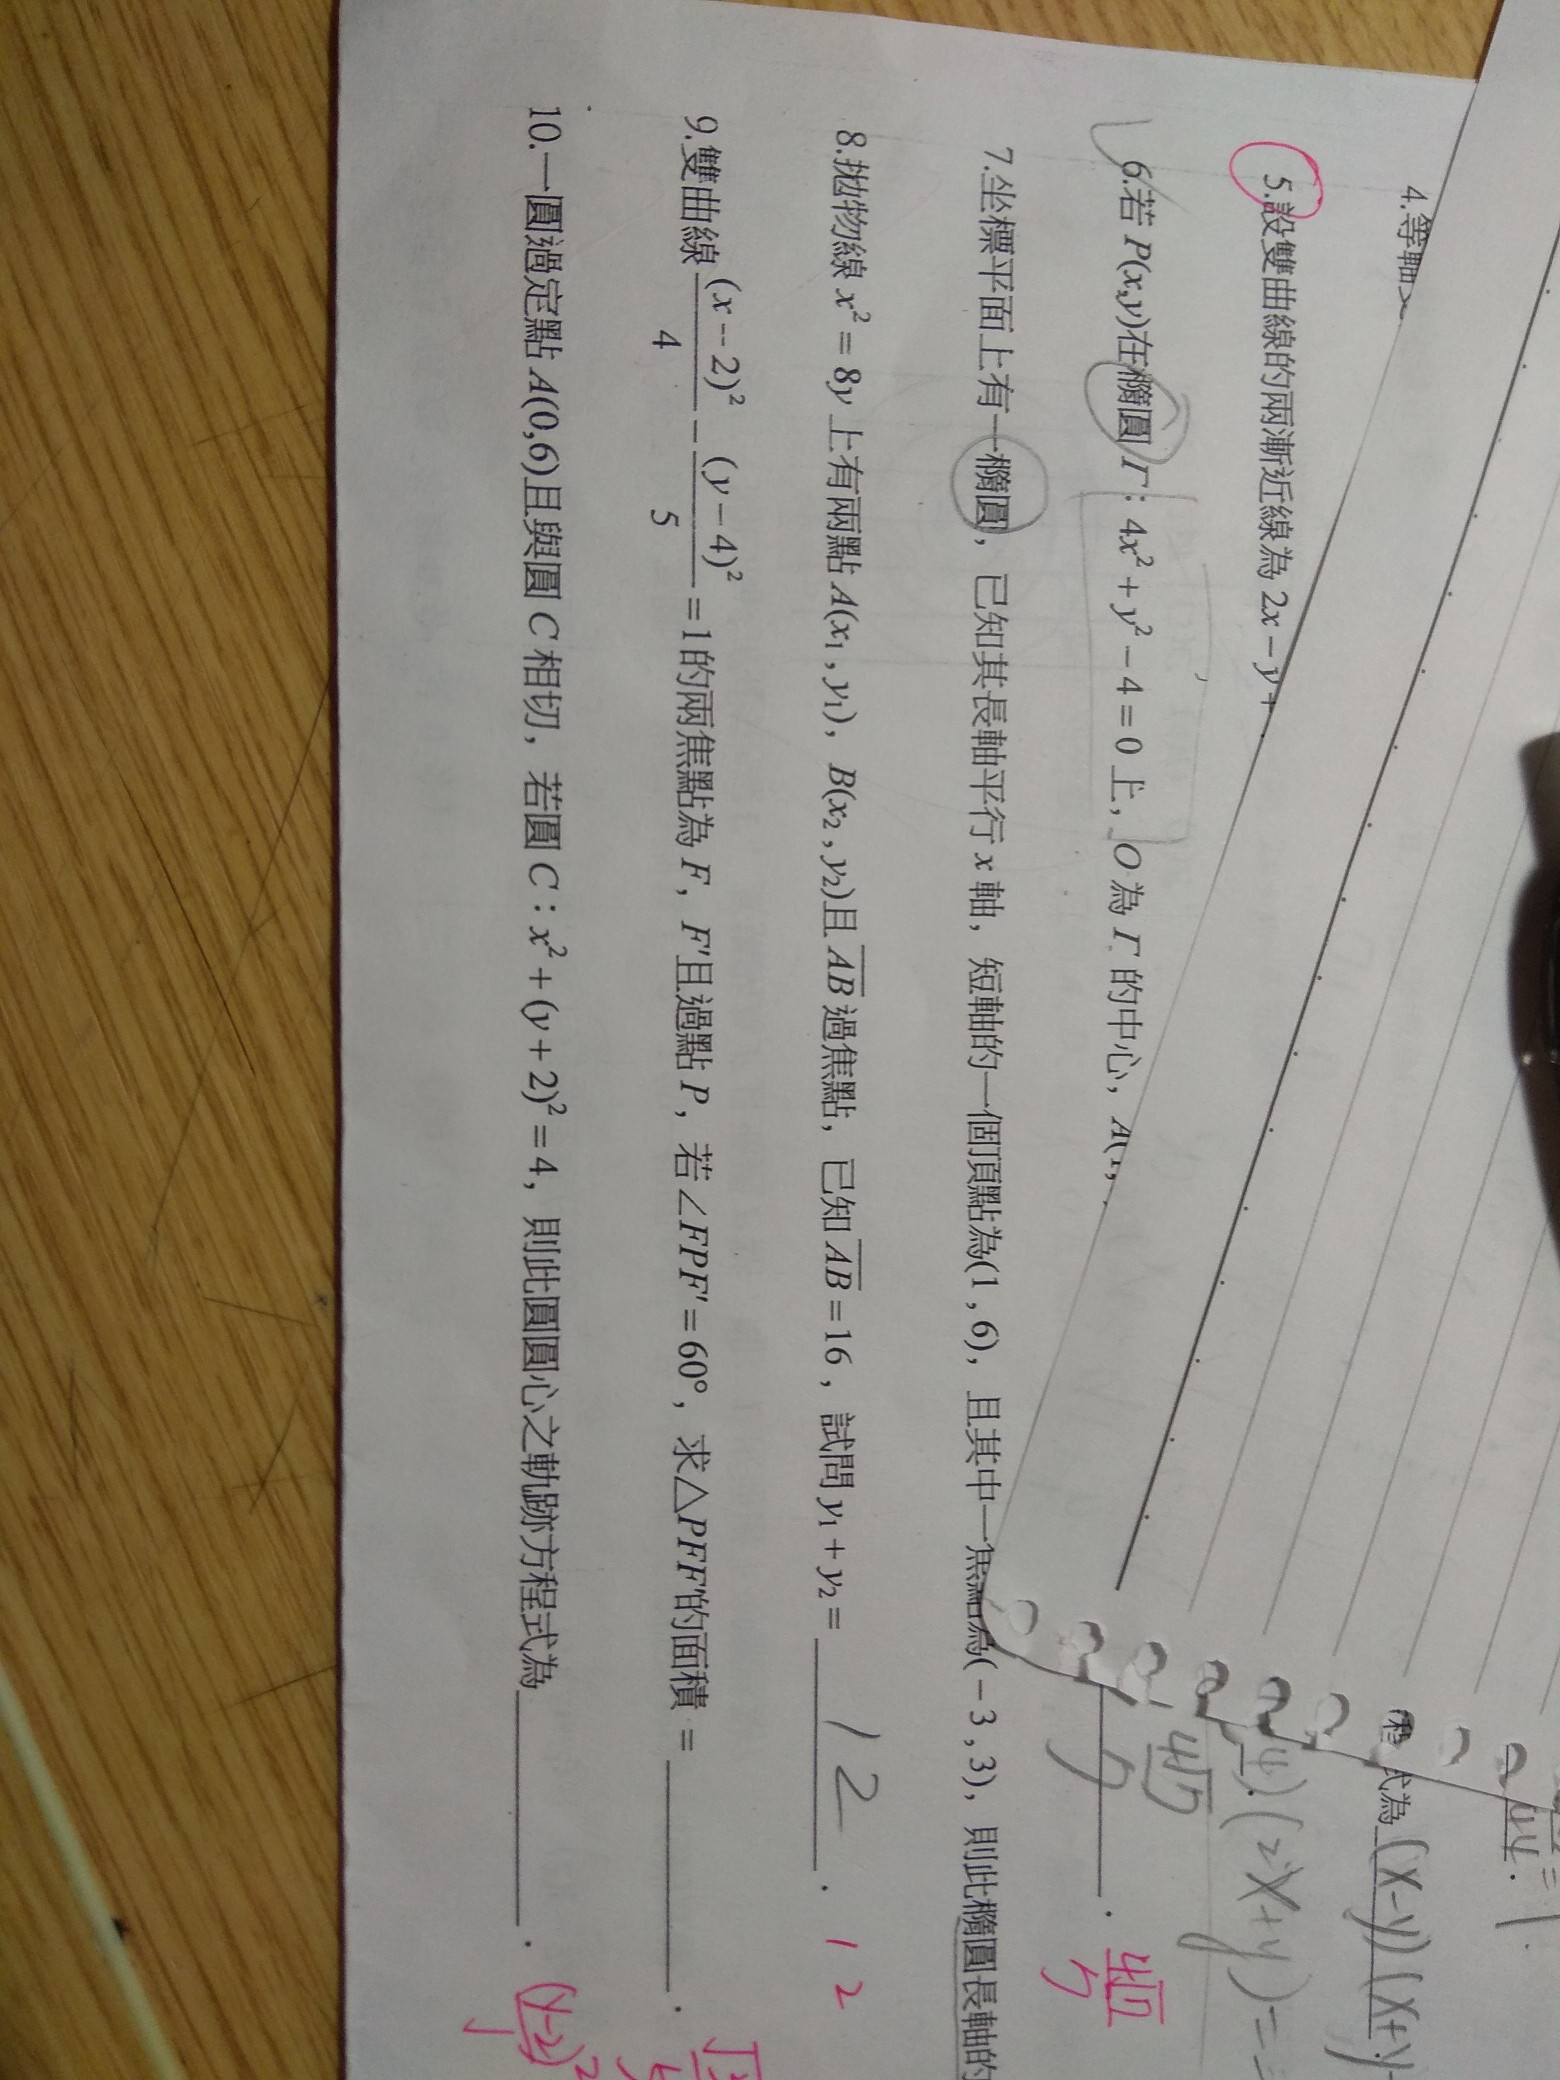 4.等軸
程式為(x-y)(x+y
5.設雙曲線的兩漸近線為 2x-y+
(2x+y)=
6.若 P(x,y)在橢圓 Γ：4x²+y²-4=0 上，O 為 Γ 的中心，A(1,
7.坐標平面上有一橢圓，已知其長軸平行 x 軸，短軸的一個頂點為(1,6)，且其中一焦點為(-3,3)，則此橢圓長軸的
8.拋物線 x²=8y 上有兩點 A(x₁,y₁)，B(x₂,y₂)且 AB 過焦點，已知 AB=16，試問 y₁+y₂= 12． 12
9.雙曲線 (x-2)²/4 - (y-4)²/5 =1 的兩焦點為 F，F'且過點 P，若∠FPF'=60°，求△PFF'的面積 = ．
10.一圓過定點 A(0,6)且與圓 C 相切，若圓 C：x²+(y+2)²=4，則此圓圓心之軌跡方程式為 ． (y-2)²